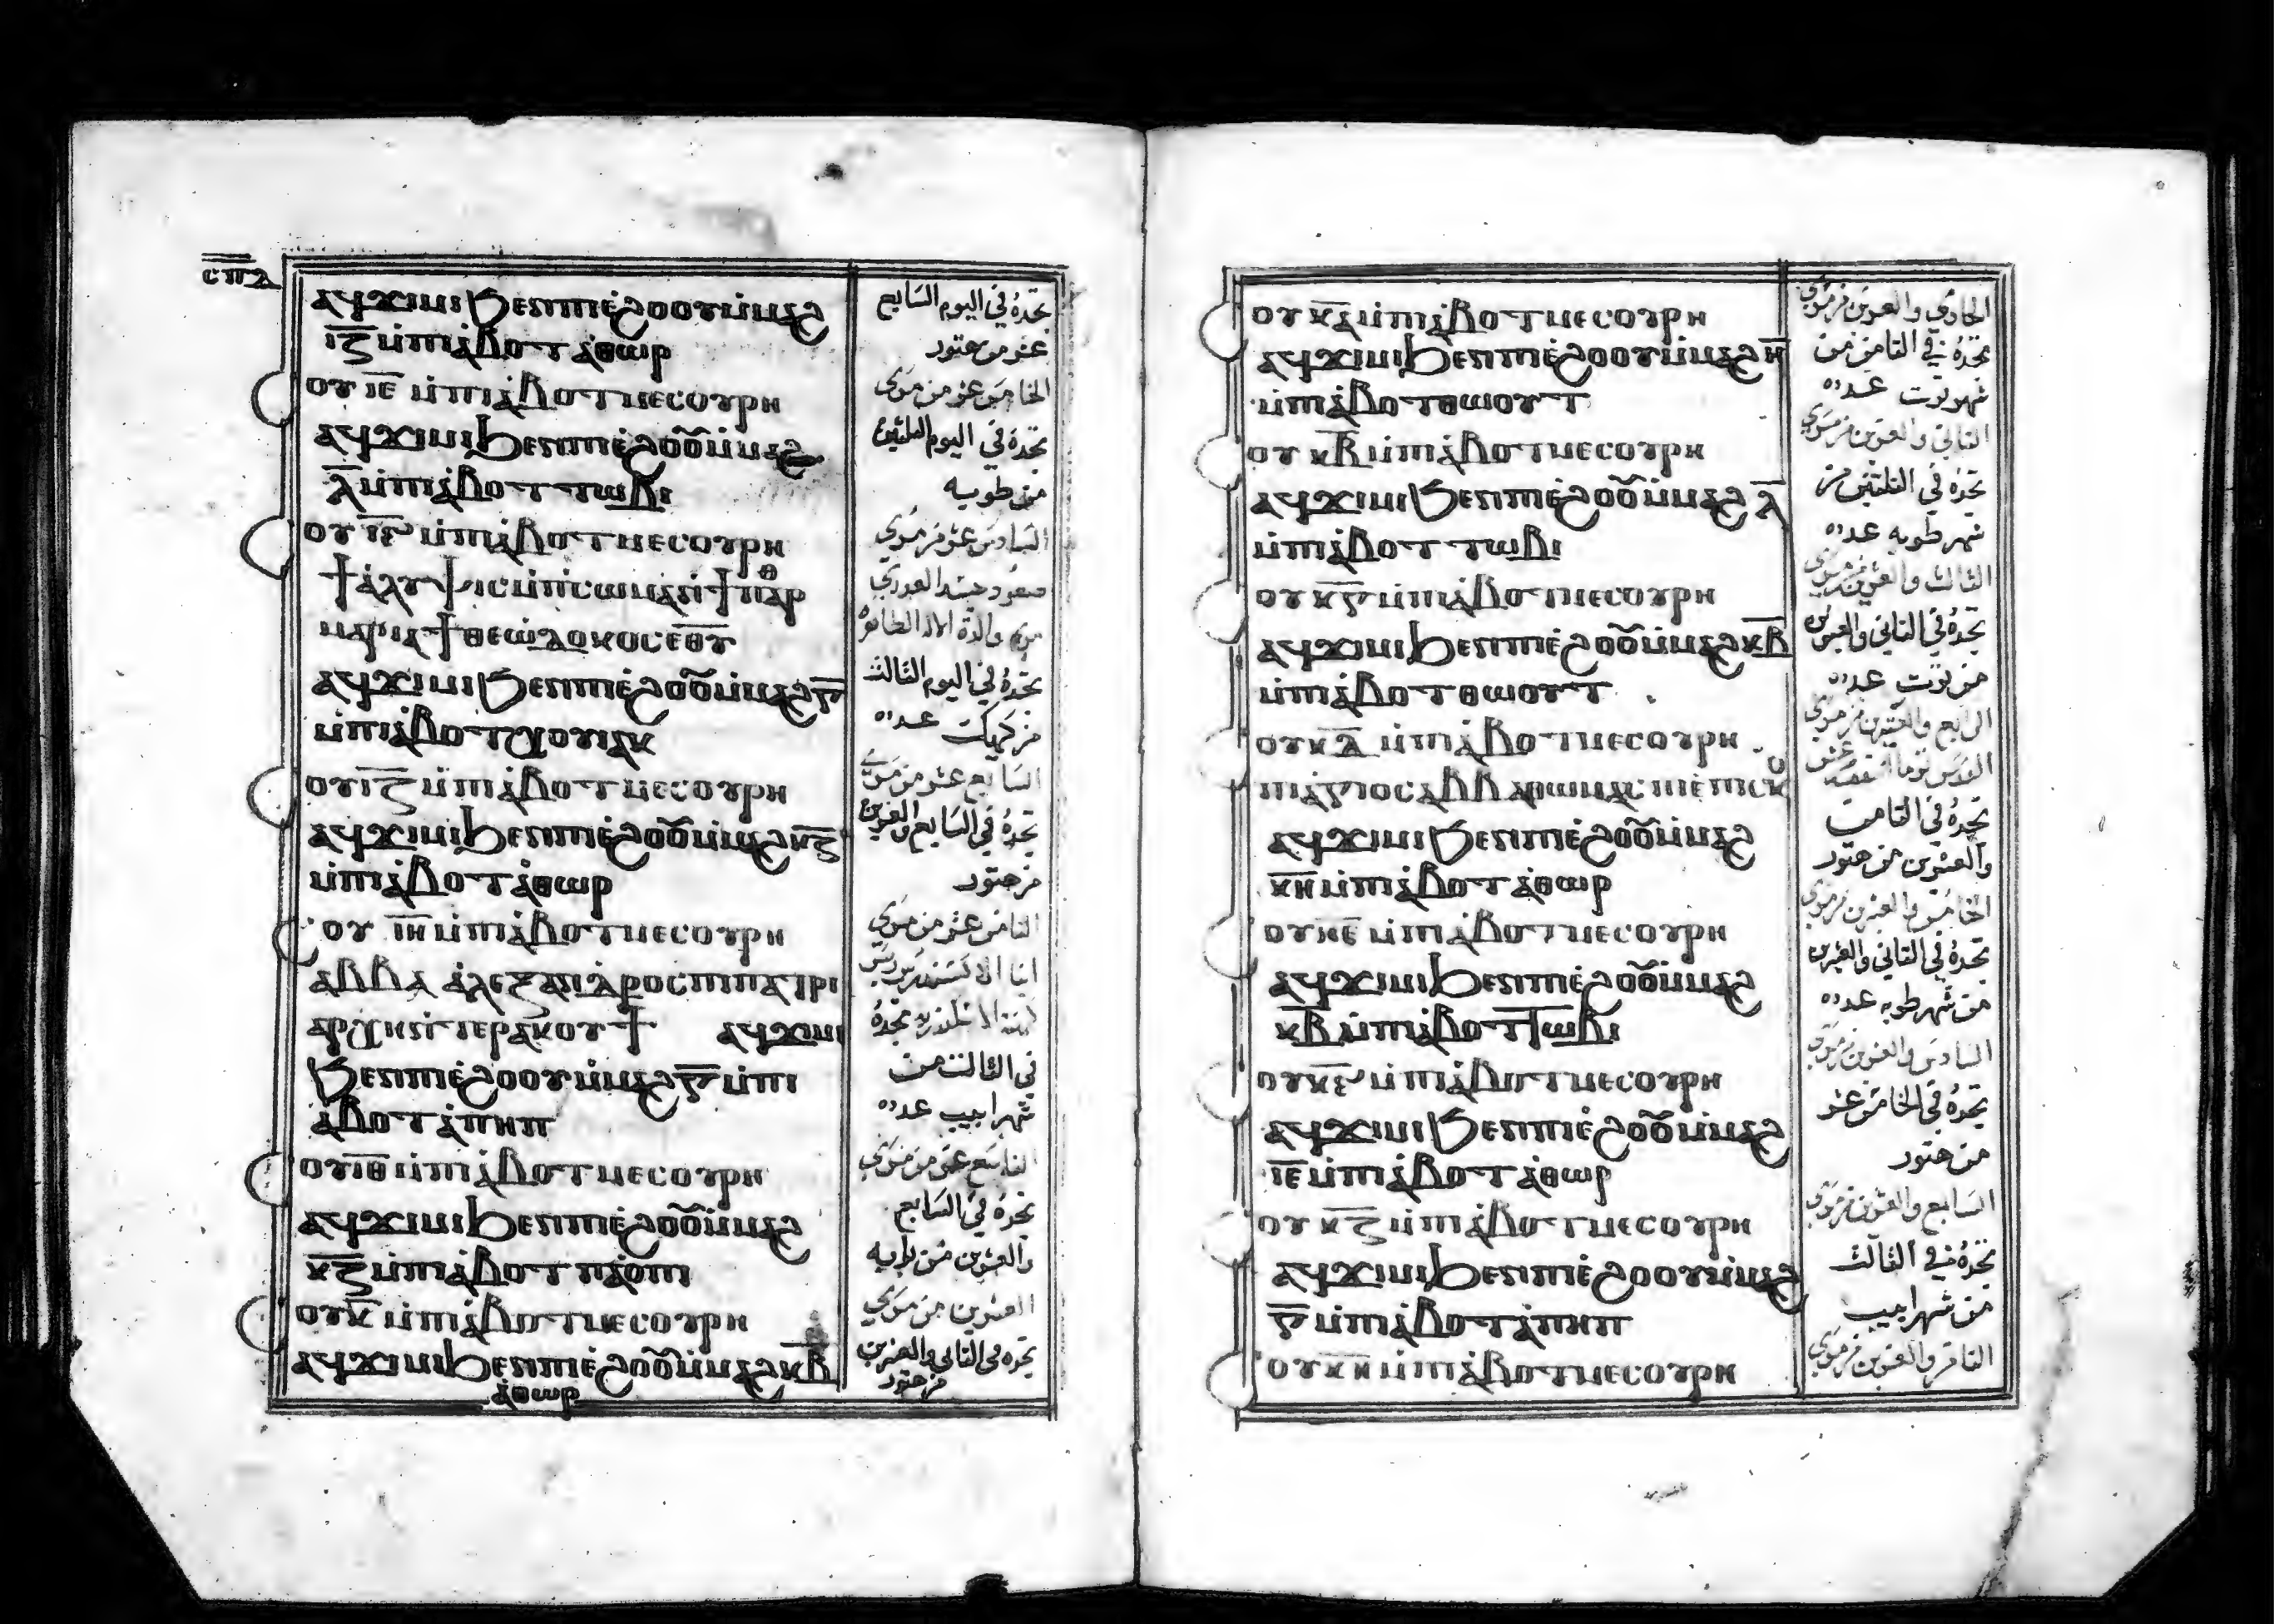 ⲥⲡⲇ
ⲁϥϫⲓⲙⲓ ϧⲉⲛ ⲡⲓⲉ̀ϩⲟⲟⲩ ⲙ̀ⲙⲁϩ
ⲓ̅ⲍ̅ ⲙ̀ⲡⲓⲁ̀ⲃⲟⲧ ⲁ̀ⲑⲱⲣ
ⲟⲩ ⲓ̅ⲉ̅ ⲙ̀ⲡⲓⲁ̀ⲃⲟⲧ ⲙⲉⲥⲟⲩⲣⲏ
ⲁϥϫⲓⲙⲓ ϧⲉⲛ ⲡⲓⲉ̀ϩⲟⲟ̅ ⲙ̀ⲙⲁϩ
ⲗ̅ ⲙ̀ⲡⲓⲁ̀ⲃⲟⲧ ⲧⲱⲃⲓ
ⲟⲩ ⲓ̅ⲋ̅ ⲙ̀ⲡⲓⲁ̀ⲃⲟⲧ ⲙⲉⲥⲟⲩⲣⲏ
ϯⲁ̀ⲛⲁⲗⲩⲙⲯⲓⲥ ⲙ̀ⲡⲥⲱⲙⲁ ⲛ̀ϯⲡⲁⲣⲑ
ⲙⲁⲣⲓⲁ ϯⲑⲉⲱ̀ⲇⲟⲕⲟⲥ ⲉ̅ⲑ̅ⲩ̅
ⲁϥϫⲓⲙⲓ ϧⲉⲛ ⲡⲓⲉ̀ϩⲟⲟ̅ ⲙ̀ⲙⲁϩ ⲅ̅
ⲙ̀ⲡⲓⲁ̀ⲃⲟⲧ ⲭⲟⲓⲁⲕ
ⲟⲩ ⲓ̅ⲍ̅ ⲙ̀ⲡⲓⲁ̀ⲃⲟⲧ ⲙⲉⲥⲟⲩⲣⲏ
ⲁϥϫⲓⲙⲓ ϧⲉⲛ ⲡⲓⲉ̀ϩⲟⲟ̅ ⲙ̀ⲙⲁϩ ⲕ̅ⲍ̅
ⲙ̀ⲡⲓⲁ̀ⲃⲟⲧ ⲁ̀ⲑⲱⲣ
ⲟⲩ ⲓ̅ⲏ̅ ⲙ̀ⲡⲓⲁ̀ⲃⲟⲧ ⲙⲉⲥⲟⲩⲣⲏ
ⲁⲃⲃⲁ ⲁ̀ⲗⲉⲝⲁⲛⲇⲣⲟⲥ ⲡⲓⲡⲁⲧⲣⲓ
ⲁⲣⲭⲏⲥ ⲓⲉⲣⲁⲕⲟⲩϯ ⲁϥϫⲓⲙⲓ
ϧⲉⲛ ⲡⲓⲉ̀ϩⲟⲟⲩ ⲙ̀ⲙⲁϩ ⲅ̅ ⲙ̀ⲡⲓ
ⲁ̀ⲃⲟⲧ ⲁ̀ⲡⲏⲡ
ⲟⲩ ⲓ̅ⲑ̅ ⲙ̀ⲡⲓⲁ̀ⲃⲟⲧ ⲙⲉⲥⲟⲩⲣⲏ
ⲁϥϫⲓⲙⲓ ϧⲉⲛ ⲡⲓⲉ̀ϩⲟⲟ̅ ⲙ̀ⲙⲁϩ
ⲕ̅ⲍ̅ ⲙ̀ⲡⲓⲁ̀ⲃⲟⲧ ⲡⲁ̀ⲟⲡⲓ
ⲟⲩ ⲕ̅ ⲙ̀ⲡⲓⲁ̀ⲃⲟⲧ ⲙⲉⲥⲟⲩⲣⲏ
ⲁϥϫⲓⲙⲓ ϧⲉⲛ ⲡⲓⲉ̀ϩⲟⲟ̅ ⲙ̀ⲙⲁϩ ⲕ̅ⲃ̅
ⲁ̀ⲑⲱⲣ
تجدهُ في اليوم السَابع
عشر من هتور
الخامس عشر من مسَري
تجدهُ في اليوم الثلثين
من طوبه
السَادس عشر من مسَري
صعود جسَد العدري
مريم والدة الاله الطاهره
تجدهُ في اليوم الثالث
من كيهك عدده
السَابع عشر من مسَري
تجدهُ في السَابع والعشرين
من هتور
الثامن عشر من مسَري
انبا الاكسَندروس بطريرك
تجدهُ
في الثالث من
شهر ابيب عدده
التاسَع عشر من مسَري
تجدهُ في السَابع
والعشرين من بابه
العشرين من مسَري
تجده في الثاني والعشرين
من هتور
ⲟⲩ ⲕ̅ⲁ̅ ⲙ̀ⲡⲓⲁ̀ⲃⲟⲧ ⲙⲉⲥⲟⲩⲣⲏ
ⲁϥϫⲓⲙⲓ ϧⲉⲛ ⲡⲓⲉ̀ϩⲟⲟⲩ ⲙ̀ⲙⲁϩ ⲏ̅
ⲙ̀ⲡⲓⲁ̀ⲃⲟⲧ ⲑⲱⲟⲩⲧ
ⲟⲩ ⲕ̅ⲃ̅ ⲙ̀ⲡⲓⲁ̀ⲃⲟⲧ ⲙⲉⲥⲟⲩⲣⲏ
ⲁϥϫⲓⲙⲓ ϧⲉⲛ ⲡⲓⲉ̀ϩⲟⲟ̅ ⲙ̀ⲙⲁϩ ⲗ̅
ⲙ̀ⲡⲓⲁ̀ⲃⲟⲧ ⲧⲱⲃⲓ
ⲟⲩ ⲕ̅ⲅ̅ ⲙ̀ⲡⲓⲁ̀ⲃⲟⲧ ⲙⲉⲥⲟⲩⲣⲏ
ⲁϥϫⲓⲙⲓ ϧⲉⲛ ⲡⲓⲉ̀ϩⲟⲟ̅ ⲙ̀ⲙⲁϩ ⲕ̅ⲃ̅
ⲙ̀ⲡⲓⲁ̀ⲃⲟⲧ ⲑⲱⲟⲩⲧ
ⲟⲩ ⲕ̅ⲇ̅ ⲙ̀ⲡⲓⲁ̀ⲃⲟⲧ ⲙⲉⲥⲟⲩⲣⲏ
ⲡⲓⲁ̀ⲅⲓⲟⲥ ⲁⲃⲃⲁ ⲑⲱⲙⲁⲥ ⲡⲓⲉ̀ⲡⲓⲥⲕⲟ
ⲁϥϫⲓⲙⲓ ϧⲉⲛ ⲡⲓⲉ̀ϩⲟⲟ̅ ⲙ̀ⲙⲁϩ
ⲕ̅ⲏ̅ ⲙ̀ⲡⲓⲁ̀ⲃⲟⲧ ⲁ̀ⲑⲱⲣ
ⲟⲩ ⲕ̅ⲉ̅ ⲙ̀ⲡⲓⲁ̀ⲃⲟⲧ ⲙⲉⲥⲟⲩⲣⲏ
ⲁϥϫⲓⲙⲓ ϧⲉⲛ ⲡⲓⲉ̀ϩⲟⲟ̅ ⲙ̀ⲙⲁϩ
ⲕ̅ⲃ̅ ⲙ̀ⲡⲓⲁ̀ⲃⲟⲧ ⲧⲱⲃⲓ
ⲟⲩ ⲕ̅ⲋ̅ ⲙ̀ⲡⲓⲁ̀ⲃⲟⲧ ⲙⲉⲥⲟⲩⲣⲏ
ⲁϥϫⲓⲙⲓ ϧⲉⲛ ⲡⲓⲉ̀ϩⲟⲟ̅ ⲙ̀ⲙⲁϩ
ⲓ̅ⲉ̅ ⲙ̀ⲡⲓⲁ̀ⲃⲟⲧ ⲁ̀ⲑⲱⲣ
ⲟⲩ ⲕ̅ⲍ̅ ⲙ̀ⲡⲓⲁ̀ⲃⲟⲧ ⲙⲉⲥⲟⲩⲣⲏ
ⲁϥϫⲓⲙⲓ ϧⲉⲛ ⲡⲓⲉ̀ϩⲟⲟⲩ ⲙ̀ⲙⲁϩ
ⲅ̅ ⲙ̀ⲡⲓⲁ̀ⲃⲟⲧ ⲁ̀ⲡⲏⲡ
ⲟⲩ ⲕ̅ⲏ̅ ⲙ̀ⲡⲓⲁ̀ⲃⲟⲧ ⲙⲉⲥⲟⲩⲣⲏ
الحادي والعشرين من مسَري
تجدهُ في الثامن من
شهر توت عدده
الثاني والعشرين من مسَري
تجدهُ في الثلثين من
شهر طوبه عدده
الثالث والعشرين من مسَري
تجدهُ في الثاني والعشرين
من توت عدده
الرابع والعشرين من مسَري
القدس توما
تجدهُ في الثامن
والعشرين من هتور
الخامس والعشرين من مسَري
تجدهُ في الثاني والعشرين
من شهر طوبه عدده
السَادس والعشرين من مسَري
تجدهُ في الخامس عشر
من هتور
السَابع والعشرين من مسَري
تجدهُ في الثالث
من شهر ابيب
الثامن والعشرين من مسَري